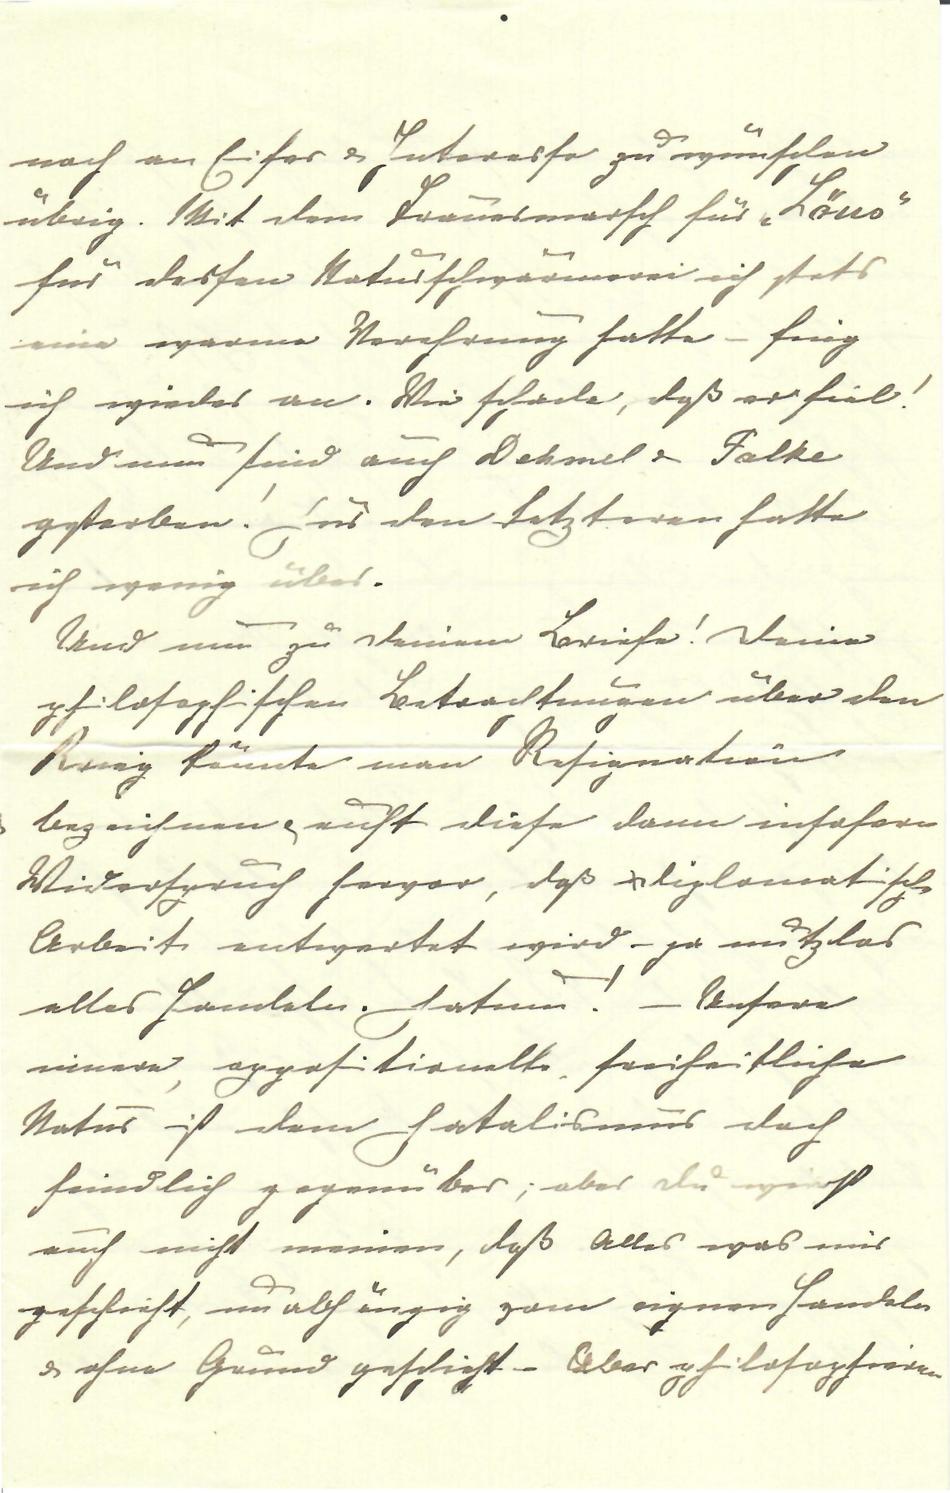 noch an Eifer & Interesse zu wünschen
übrig. Mit dem Trauermarsch für „Löns"
für dessen Naturschwärmerei ich stets
eine warme Verehrung hatte – fing
ich wieder an. Wie schade, daß er fiel!
Und nun sind auch Dehmel & Falke
gestorben! Für den Letzteren hatte
ich wenig über.
Und nun zu deinem Briefe! Deine
philosophischen Betrachtungen über den
Krieg könnte man Resignation
bezeichnen, ruft diese dann insofern
Widerspruch hervor, daß diplomatische
Arbeit entwertet wird – ja nutzlos
alles Handeln. Fatum! – Unsere
innere, oppositionelle, freiheitliche
Natur ist dem Fatalismus doch
feindlich gegenüber; aber du wirst
auch nicht meinen, daß Alles was mir
geschieht, unabhängig vom eignen Handeln
& ohne Grund geschieht – Aber philosophieren